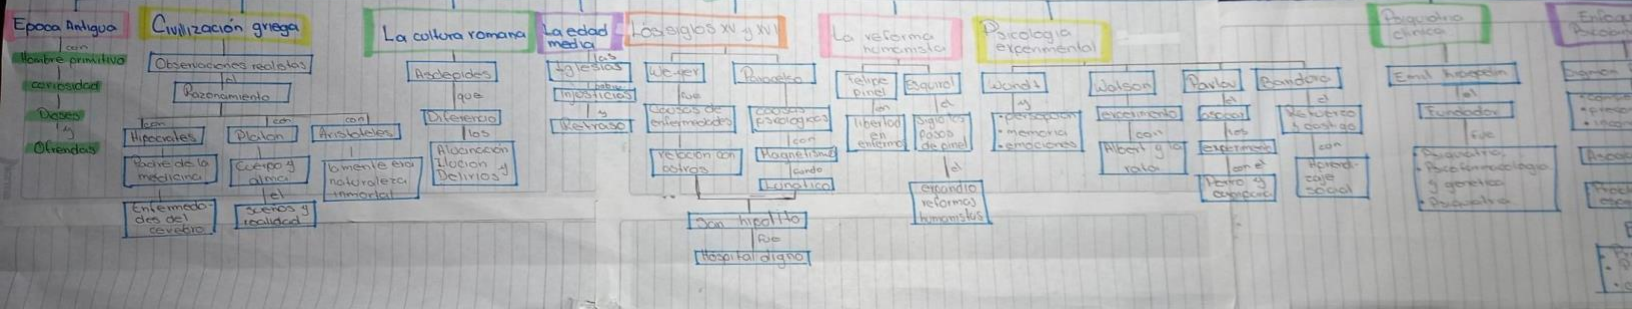 Epoca Antigua
con
Hombre primitivo
curiosidad
Dioses
y
Ofrendas
Civilización griega
Observaciones realistas
el
Razonamiento
con
Hipocrates
Padre de la
medicina
Enfermeda-
des del
cerebro
con
Platon
Cuerpo y
alma
el
sueños y
realidad
con
Aristoteles
la mente era
naturaleza
inmortal
La cultura romana
Asclepides
que
Diferencio
los
Alucinación
Ilucion y
Delirios
La edad
media
las
Iglesias
Injusticias
y
Retraso
Los siglos XV y XVI
Weyer
fue
Causas de
enfermedades
relacion con
otros
Paracelso
causas
psicologicas
con
Magnetismo
Lunatico
San hipolito
fue
Hospital digno
La reforma
humanista
Felipe
pinel
libertad
en
enfermo
Esquirol
el
Sigio los
pasos
de pinel
el
expandio
reformas
humanistas
Psicologia
experimental
Wundt
y
• percepcion
• memoria
• emociones
Watson
experimento
con
Albert y la
rata
Pavlov
el
los
experimento
con el
Perro y
campana
Bandura
el
Refuerzo
y castigo
con
Aprendi-
zaje
social
Psiquiatria
clinica
Emil kraepelin
el
Fundador
fue
• Psiquiatria
• Psicofarmacologia
y genetica
• Psiquiatria